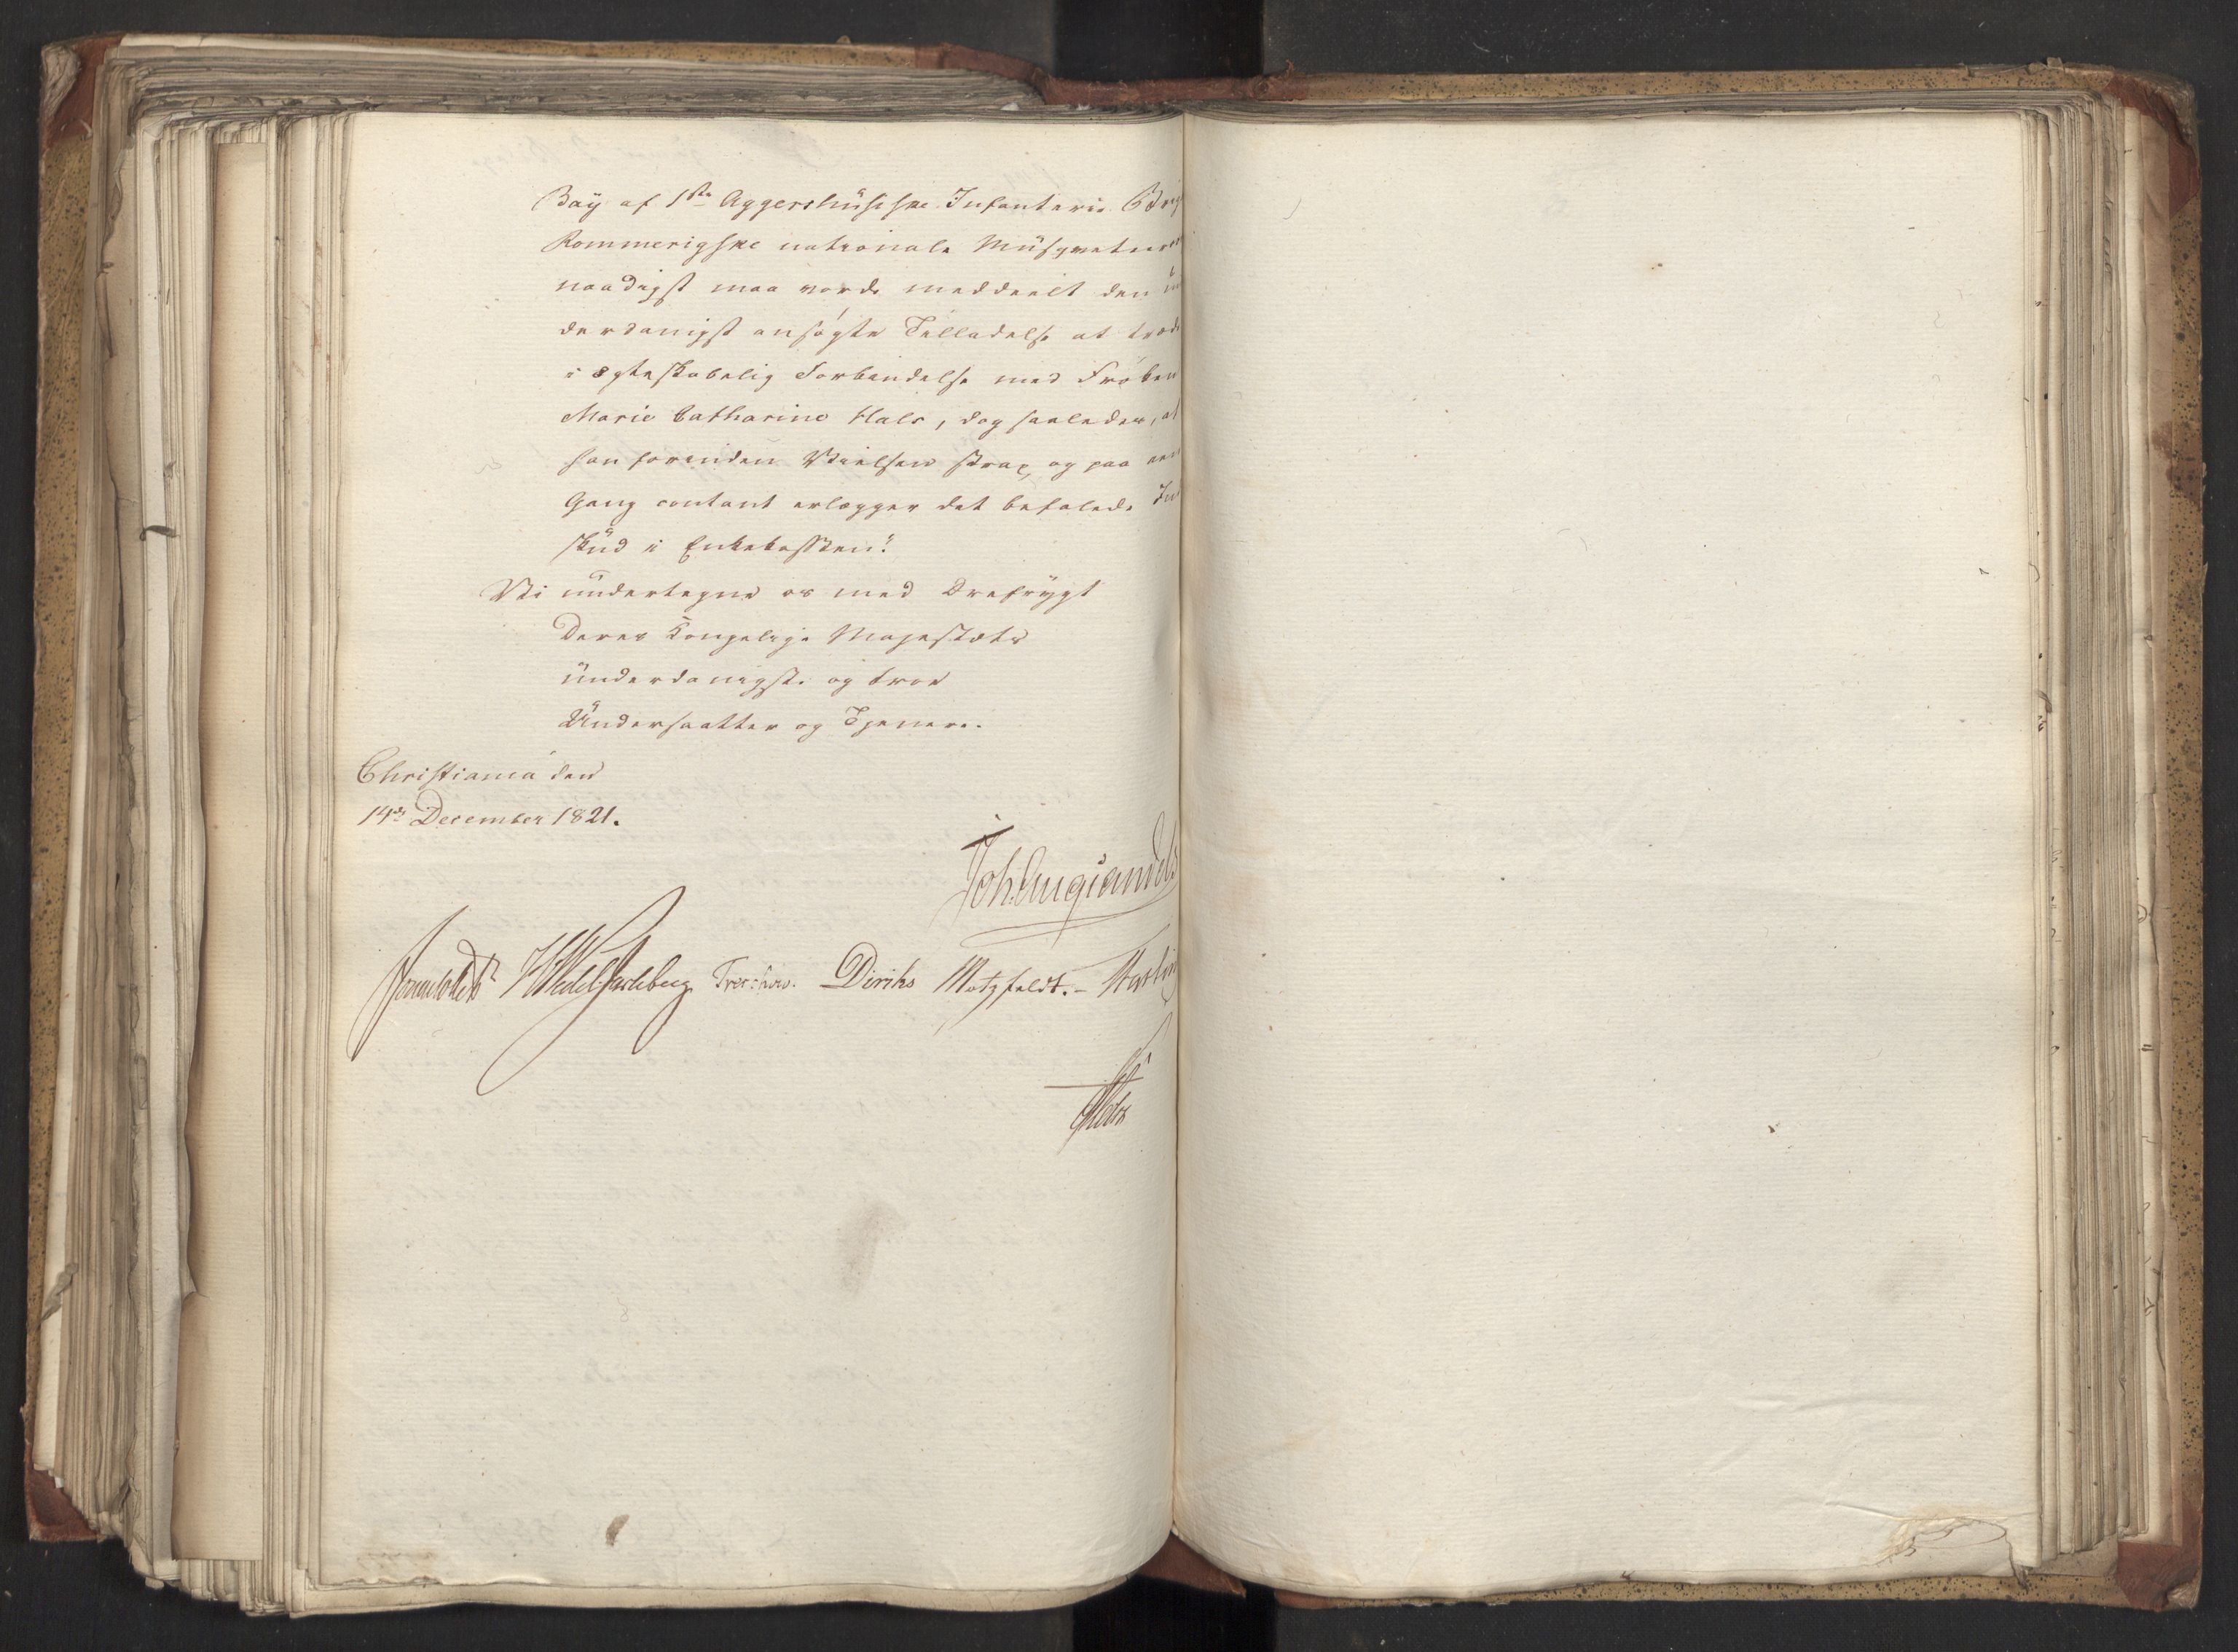 Bay af 1ste Aggershüsiske Infanterie Brig
Rommerigske nationale Müsqveteer
naadigst maa vorde meddeelt den ün
derdanigst ansøgte Tilladelse at træde
i ægteskabelig Forbindelse med Frøken
Marie Catharine Hals, dog saaledes, at
han forinden Vielsen strax og paa een
Gang contant erlægger det befalede Ind
skud i Enkekassen."
Vi ündertegne os med Ærefrygt
Deres Kongelige Majestæts
ünderdanigste og troe
Ündersaatter og Tjenere.
Christiania den
14de December 1821.
Joh. Aug Sandels
Sommerhielm HWedel Jarlsberg Treschow. Diriks Motzfeldt.- Hasthi